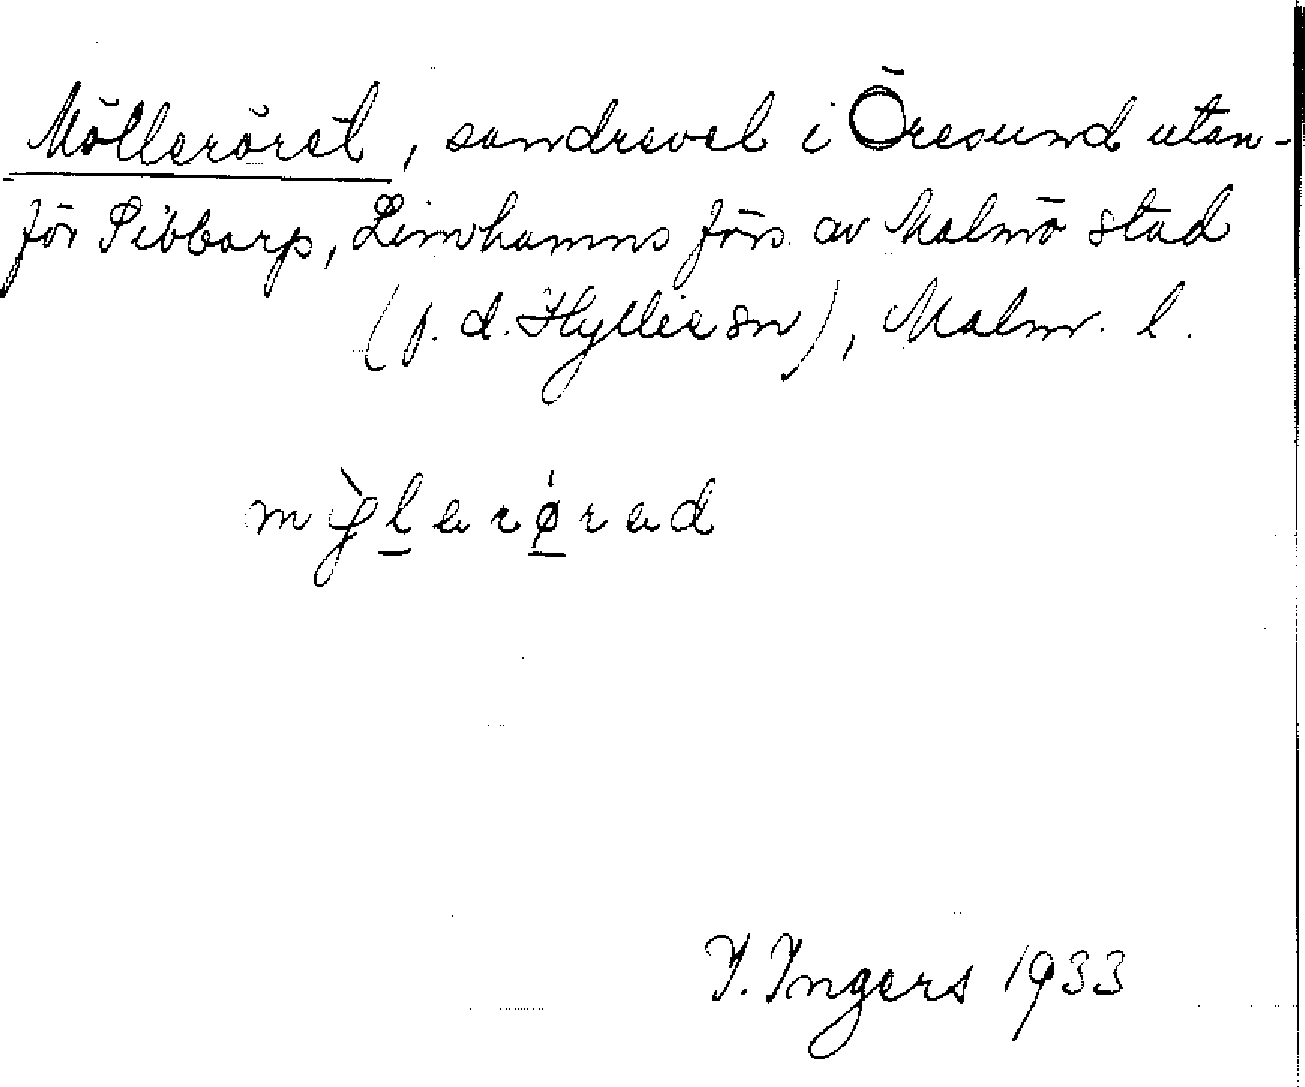 Mölleröret, sandrevel i Öresund utan-
för Sibbarp, Limhamns förs. av Malmö stad
(f. d. Hyllie sn), Malm. l.
I. Ingers 1933